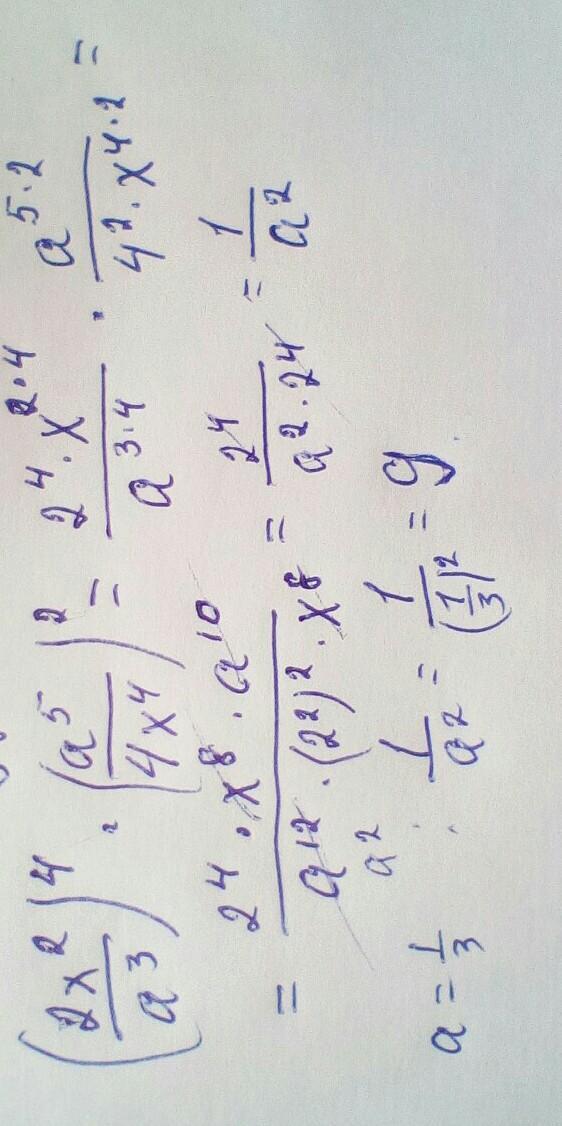 (2x²/a³)⁴ · (a⁵/4x⁴)² = 2⁴·x²·⁴/a³·⁴ · a⁵·²/4²·x⁴·² =
= 2⁴·x⁸·a¹⁰/a¹²·(2²)²·x⁸ = 2⁴/a²·2⁴ = 1/a²
a²
a = 1/3 1/a² = 1/(1/3)² = 9